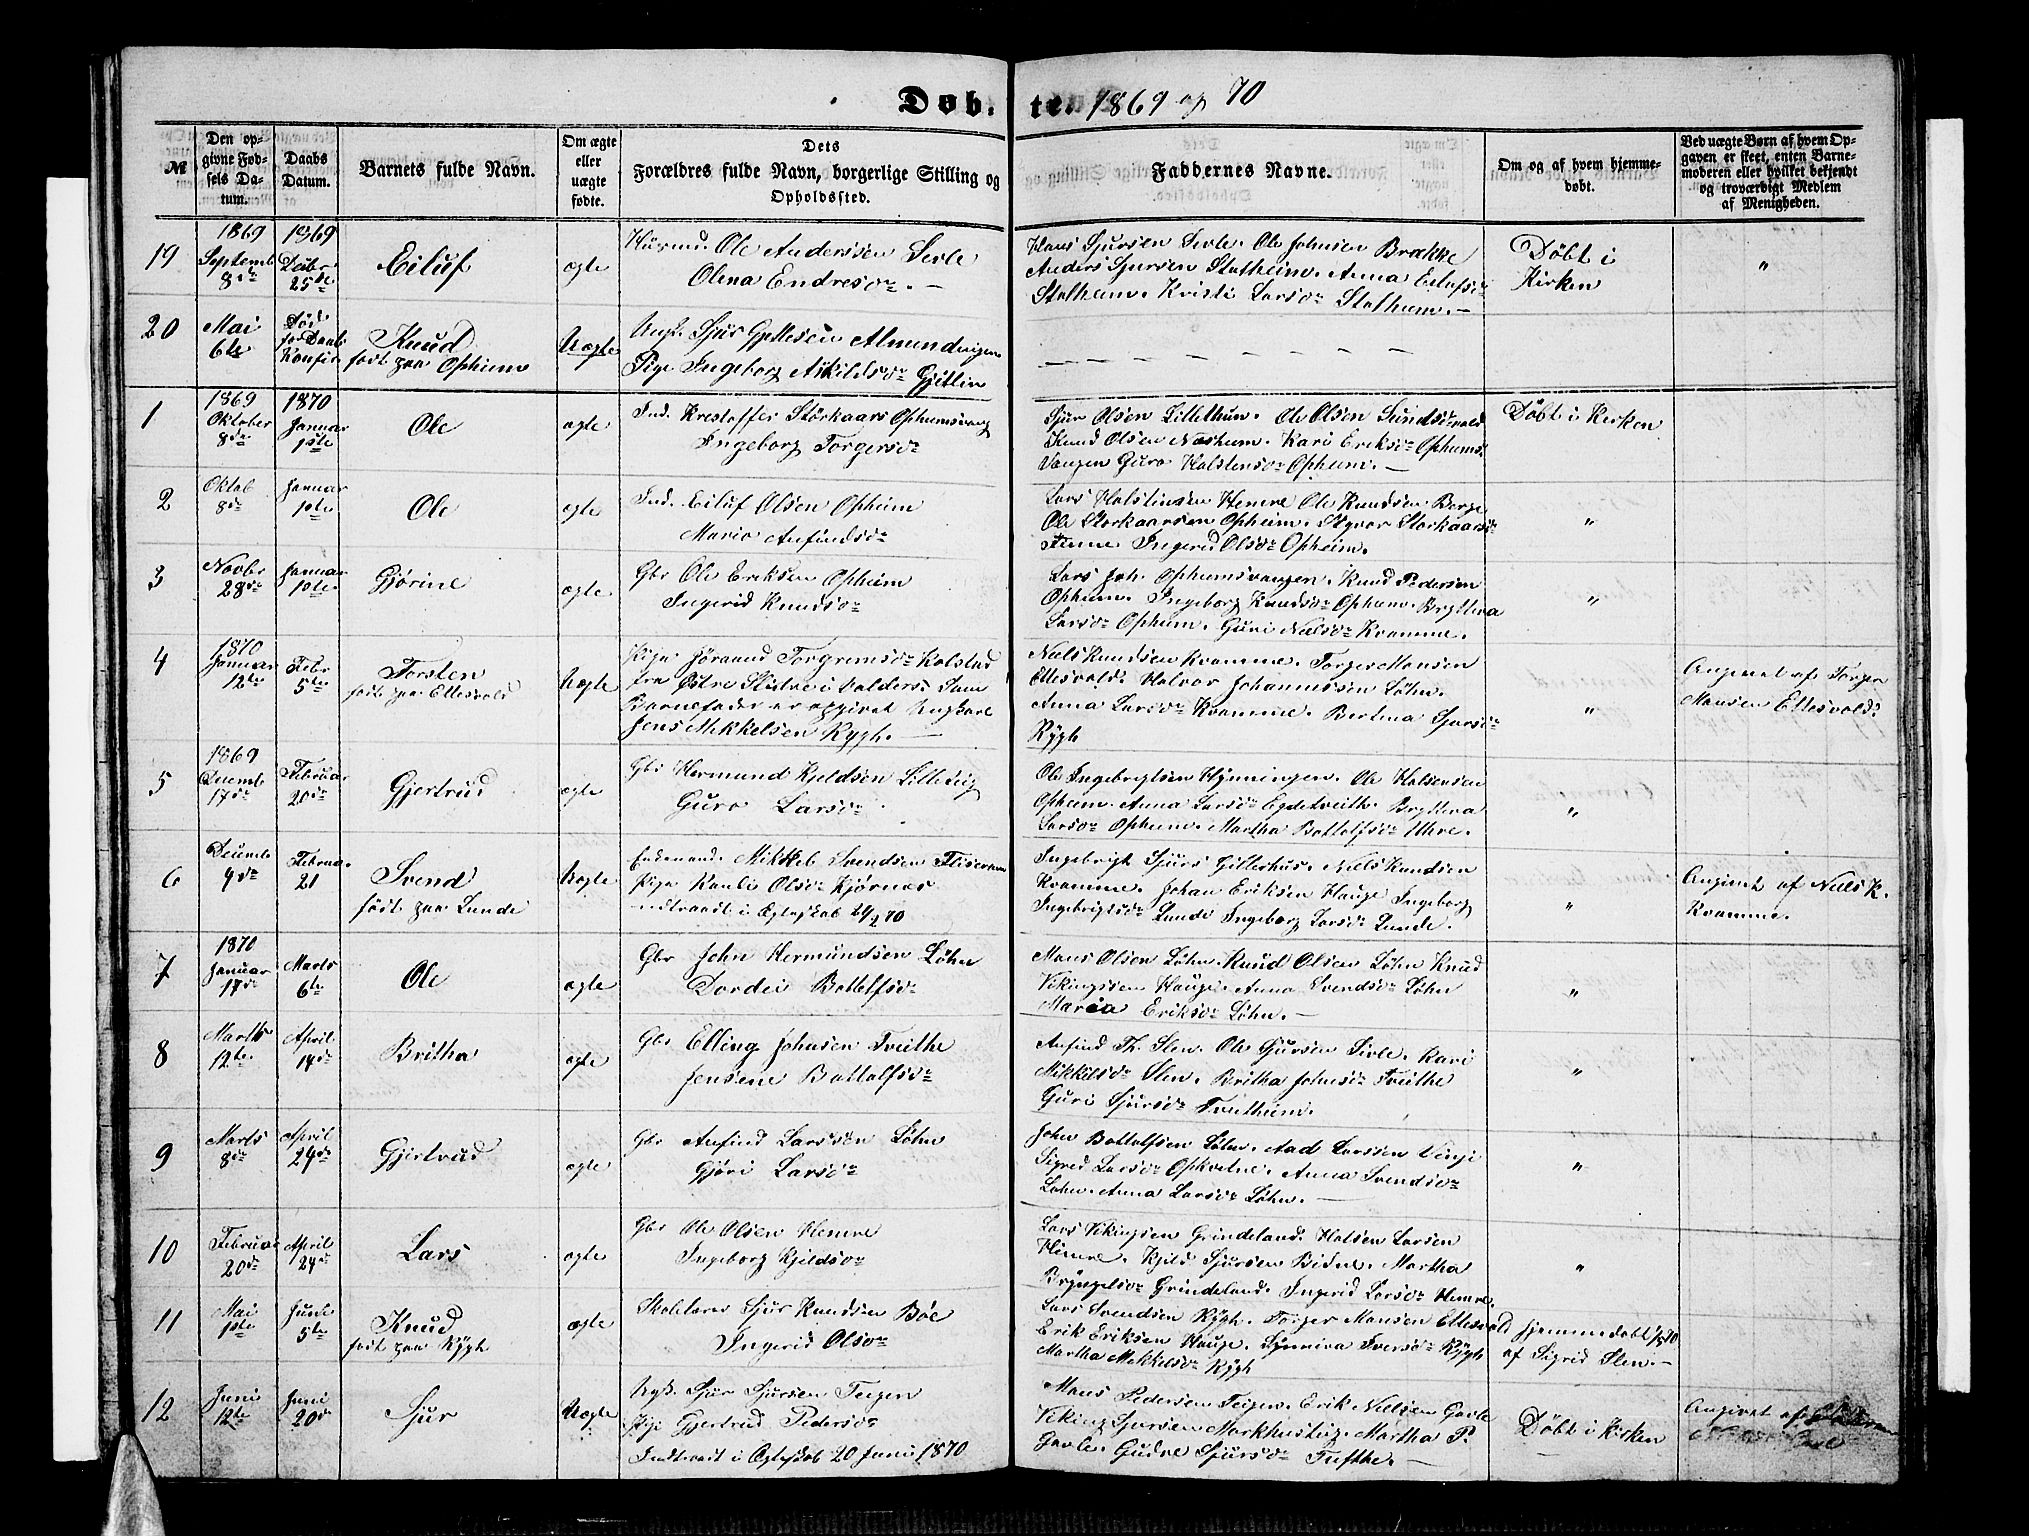 Døbte 1869 og 70
№
Den op-
givne Fød-
sels Da-
tum.
Daabs
Datum.
Barnets fulde Navn.
Om ægte
eller
uægte
fødte.
Dets
Forældres fulde Navn, borgerlige Stilling og
Opholdssted.
Faddernes Navne.
Om og af hvem hjemme-
døbt.
Ved uægte Børn af hvem Op-
gaven er skeet, enten Barne-
moderen eller hvilket bekjendt
og troværdigt Medlem
af Menigheden.
19
1869
Septemb
8de
1869
Decbr
25de
Eiluf
ægte
Huusmd. Ole Anderssen Sivle
Olena Endresdr. —
Hans Sjursen Sivle. Ole Johnsen Brække
Anders Sjursen Stalheim. Anna Eilufsdr
Stalheim. Kristi Larsdr Stalheim. —
Døbt i
Kirken
"
20
Mai
6te
Død
før Daabs
Konfir
Knud
født paa Opheim
Uægte
Ungk. Sjur
Pige Ingeborg Gjitlin
— — — — — — — —
1
1869
Oktober
8de
1870
Januar
1ste
Ole
ægte
Ind. Krestoffer Störkaars Ophimsvang
Ingeborg Torgersdr
Sjur Olsen Lillethun. Ole Olsen
Knud Olsen Næsheim. Kari Eriksdr Ophums
Vangen Guro Halstensdr Ophum. —
Døbt i Kirken
2
Oktob
8de
Januar
1ste
Ole
ægte
Ind. Eiluf Olsen Opheim
Maria Anfindsdr
Lars Halstensen Hemre Ole Knudsen Berge
Ole Storkaarsen Opheim. Storkaarsdr
Ingerid Olsdr Opheim.
"
3
Novbr
28de
Januar
1ste
Gjørine
ægte
Gbr Ole Eriksen Opheim
Ingerid Knudsdr
Lars Joh. Ophumsvangen. Knud Pedersen
Ophum. Ingeborg Knudsdr Ophum. Brytteva
Larsdr Ophum. Guri Nielsdr Kvamme.
"
4
1870
Januar
12te
Febr
5te
Torsten
født paa Ettesvold
Uægte
Pige Jørand Torgremsdr Kolstad
fra Østre Slidre i Valders. Som
Barnefader er opgivet Ungkarl
Jens Mikkelsen Rygh. —
Niels Knudsen Kvamme. Torger Monsen
Ettesvold. Halvor Johannessen Løhn.
Anna Larsdr Kvamme. Bertina Sjursdr
Rygh
"
Angivet af Torger
Monsen Ettesvold.
5
1869
Decemb
17de
Februar
20de
Gjertrud
ægte
Gbr Hermund Kjeldsen Lilleeig
Guro Larsdr
Ole Ingebrigtsen Hynningen. Ole Halsensen
Opheim. Anna Larsdr Egdetveith. Bryttera
Larsdr Ophum. Martha Bottolfsdr Uhre.
"
6
Decemb
9de
Februar
21
Svend
født paa Lunde
Uægte
Enkemand. Mikkel Svendsen
Pige Kanli Olsdr Kjørnes
indtraadt i Ægteskab 24/2 70
Ingebrigt Sjurs Gilterhus. Niels Knudsen
Kvamme. Johan Eriksen Hauge Ingeborg
Ingebrigtsdr Lunde Ingeborg Larsdr Lunde.
"
Angivet af Niels K.
Kvamme.
7
1870
Januar
17de
Marts
6te
Ole
ægte
Gbr John Hermundsen Løhn
Dordei Bottolfsdr
Mons Olsen Løhn. Knud Olsen Løhn Knud
Vikingssen Hauge. Anna Svendsdr Løhn
Maria Eriksdr Løhn. —
"
8
Marts
12te
April
14de
Britha
ægte
Gbr Elling Johnsen Tveithe
Jensine Bottolfsdr
Anfind Th. Slen. Ole Sjursen Sivle. Kari
Mikkelsdr Slen. Britha Johnsdr Tveithe
Guri Sjursdr Tveitheim.
"
9
Marts
8de
April
24de
Gjertrud
ægte
Gbr Anfind Larssøn Løhn
Gjøri Larsdr
John Bottolfsen Løhn. Aad Larssen Vinje
Sigred Larsdr Opkvitne. Anna Svendsdr
Løhn. Anna Larsdr Løhn. —
"
10
Februar
20de
April
24de
Lars
ægte
Gbr Ole Olsen Hemre
Ingeborg Kjeldsdr
Lars Vikingsen Grindeland. Halsen Larsen
Himre. Kjeld Sjursen Bidne. Martha
Bryngelsdr Grindeland. Ingerid Larsdr Hemre.
"
11
Mai
1ste
Juni
5te
Knud
født paa Rygh
ægte
Skolelærer Sjur Knudsen Bøe
Ingerid Olsdr
Lars Svendsen Rygh. Torger Monsen Ettesvold
Erik Eriksen Hauge. Synneva Iversdr Rygh
Martha Mikkelsdr Rygh
Hjemmedøbt 1/5 70
af Sigrid Slen. —
12
Juni
12te
Juni
20de
Sjur
Uægte
Ugk. Sjur Sjursen Teigen
Pige Gjertrud Pedersdr
Indtraadt i Ægteskab 20 Juni 1870
Mons Pedersen Teigen. Erik Nielsen Gavle
Viking Sjursen Markhusteig. Martha P.
Gavle. Gudve Sjursdr Tufthe. —
Døbt i Kirken
Angivet af